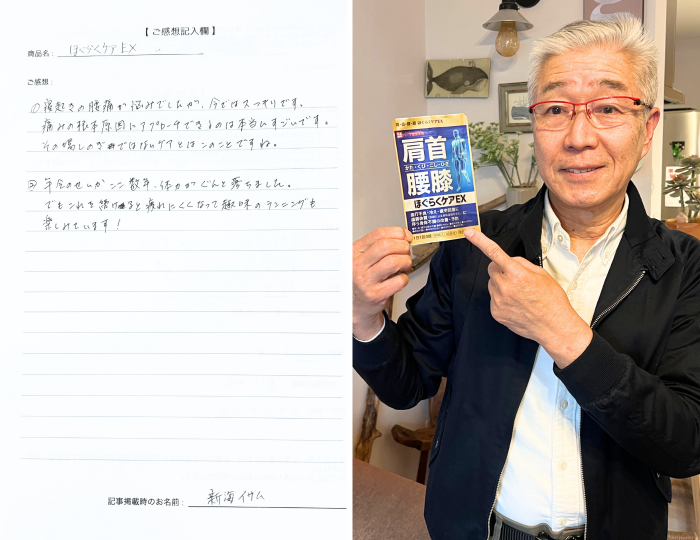 【ご感想記入欄】
商品名: ほぐらくケアEX
ご感想:
① 寝起きの腰痛が悩みでしたが、今ではスッキリです。
痛みの根本原因にアプローチできるのは本当にすごいです。
その場しのぎではないケアとはこのことですね。
② 年令のせいかここ数年、体力ががくんと落ちました。
でもこれを続けると疲れにくくなって趣味のランニングも
楽しめています!
記事掲載時のお名前: 新海イサム
肩・首・腰・膝 ほぐらくケアEX
肩首
かた・くび・こし・ひざ
腰膝
ほぐらくケアEX